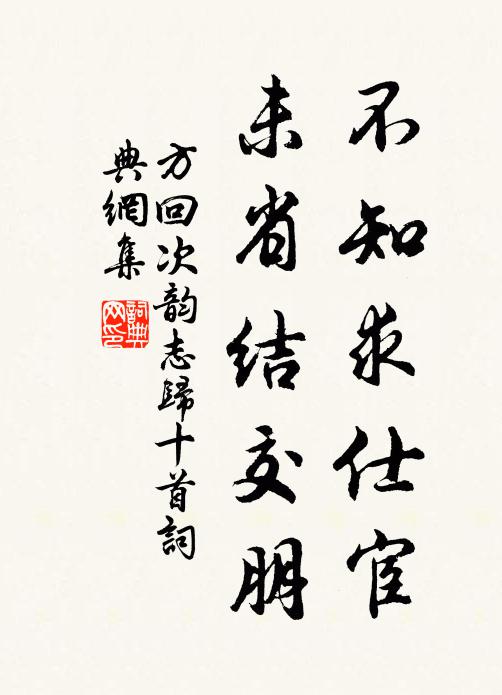 不知求仕宦
未省結交朋
方回次韵志歸十首詞
典網集
詞典
网印